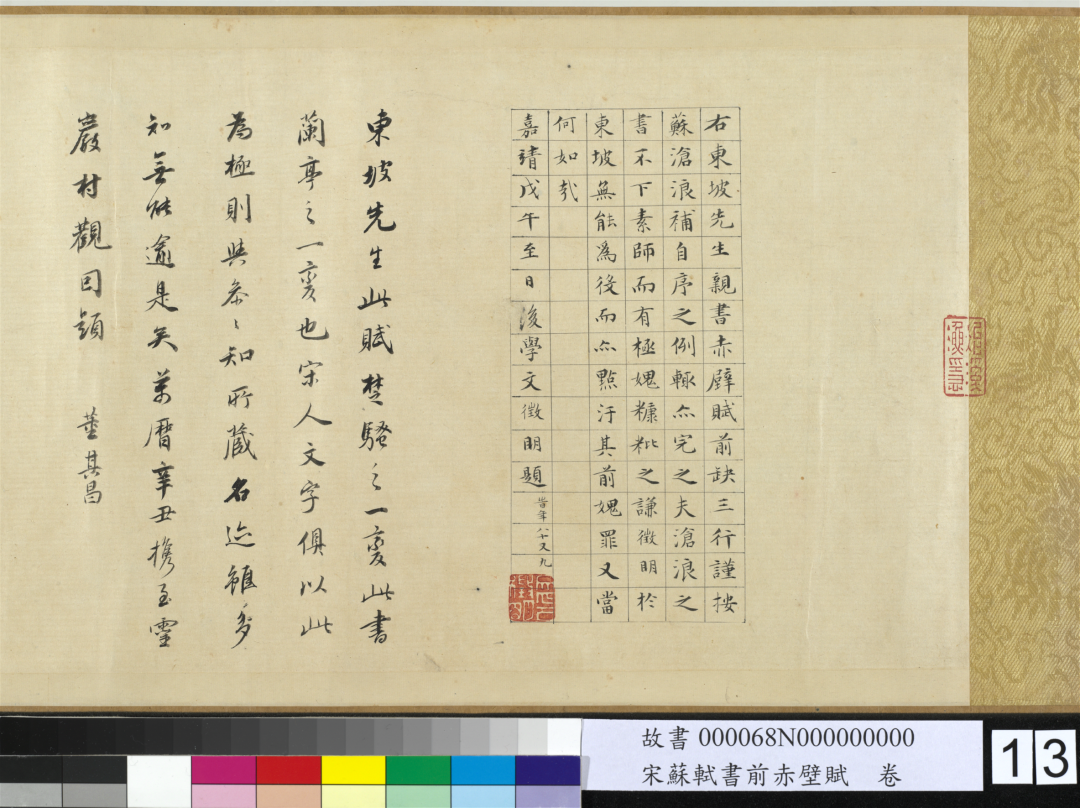 右東坡先生親書赤壁賦前缺三行謹按
蘇滄浪補自序之例輒亦完之夫滄浪之
書不下素師而有極媿糠粃之謙徵明於
東坡無能爲役而亦點汙其前媿罪又當
何如哉
嘉靖戊午至日後學文徵明題 時年八十又九
東坡先生此賦楚騷之一變此書
蘭亭之一變也宋人文字俱以此
為極則與參々知所藏名迹雖多
知無能逾是矣萬曆辛丑攜至靈
巖村觀因題 董其昌
故書 000068N000000000
宋蘇軾書前赤壁賦 卷
13